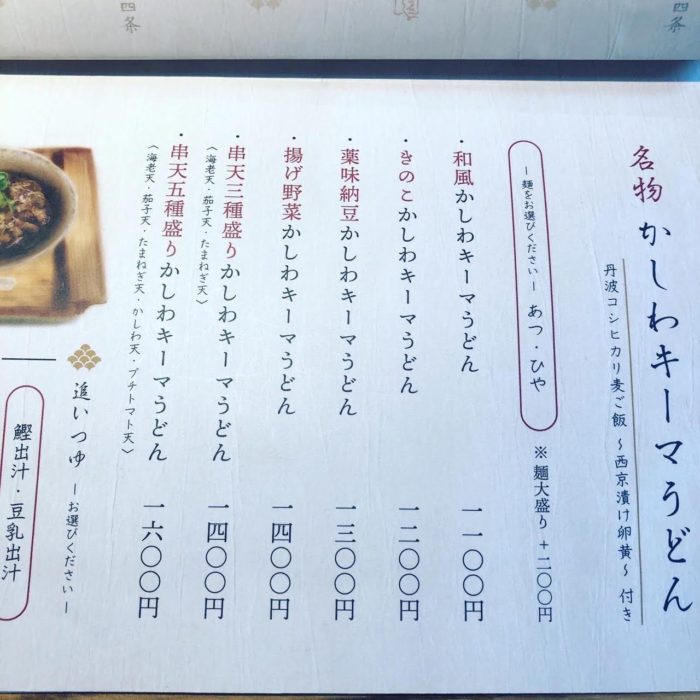 四条
四条
名物 かしわキーマうどん
丹波コシヒカリ麦ご飯 ～西京漬け卵黄～ 付き
ー 麺をお選びください ー あつ・ひや
※ 麺大盛り +二〇〇円
・和風かしわキーマうどん 一一〇〇円
・きのこかしわキーマうどん 一二〇〇円
・薬味納豆かしわキーマうどん 一三〇〇円
・揚げ野菜かしわキーマうどん 一四〇〇円
・串天三種盛りかしわキーマうどん 一四〇〇円
〈海老天・茄子天・たまねぎ天〉
・串天五種盛りかしわキーマうどん 一六〇〇円
〈海老天・茄子天・たまねぎ天・かしわ天・プチトマト天〉
追いつゆ ーお選びくださいー
鰹出汁・豆乳出汁